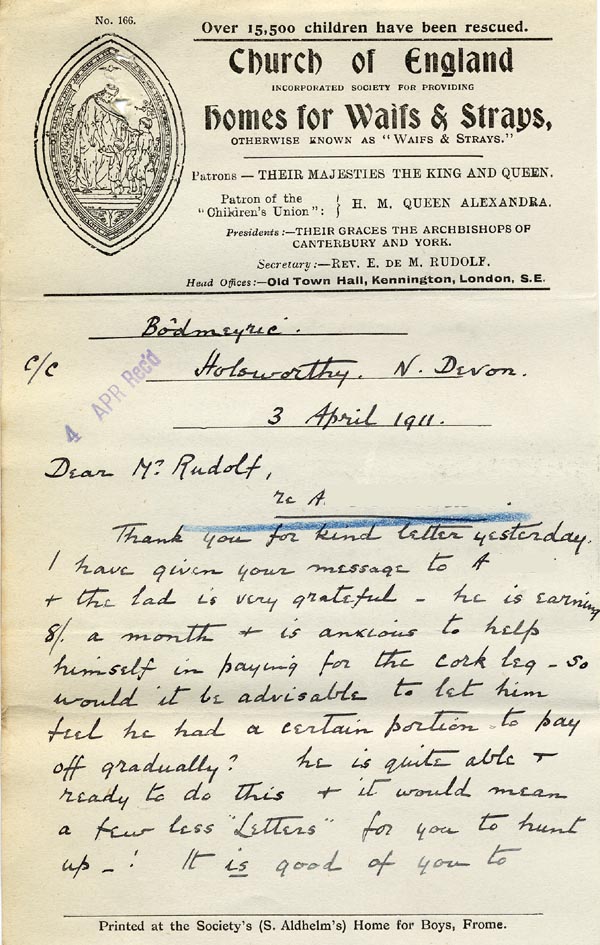 No. 166.
Over 15,500 children have been rescued.
Church of England
INCORPORATED SOCIETY FOR PROVIDING
Homes for Waifs & Strays,
OTHERWISE KNOWN AS "WAIFS & STRAYS."
Patrons — THEIR MAJESTIES THE KING AND QUEEN.
Patron of the "Children's Union": } H. M. QUEEN ALEXANDRA.
Presidents:—THEIR GRACES THE ARCHBISHOPS OF
CANTERBURY AND YORK.
Secretary:—REV. E. DE M. RUDOLF.
Head Offices:—Old Town Hall, Kennington, London, S.E.
Bodmeyric.
c/c
Holsworthy. N. Devon.
4 APR Rec'd
3 April 1911.
Dear Mr Rudolf,
re A
Thank you for kind letter yesterday.
I have given your message to A
+ the lad is very grateful - he is earning
8/. a month + is anxious to help
himself in paying for the cork leg - so
would it be advisable to let him
feel he had a certain portion to pay
off gradually? he is quite able +
ready to do this + it would mean
a few less "Letters" for you to hunt
up - ! It is good of you to
Printed at the Society's (S. Aldhelm's) Home for Boys, Frome.